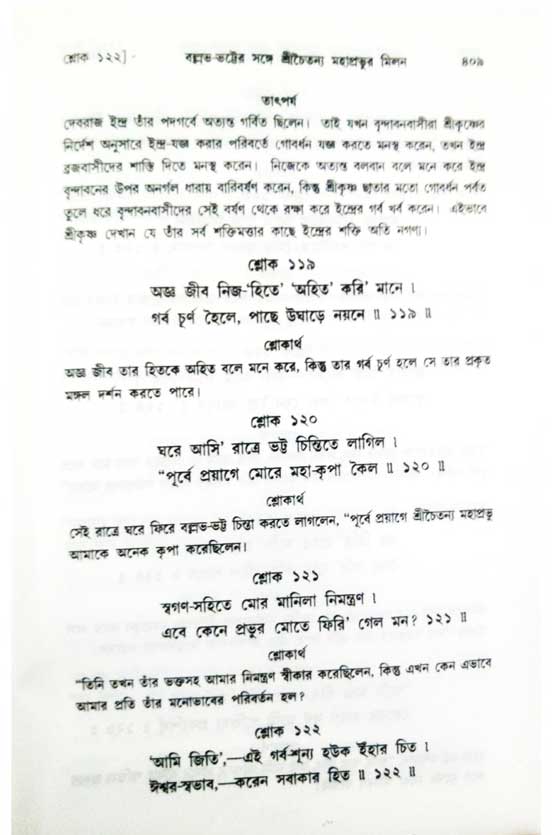 শ্লোক ১২২]
বল্লভ-ভট্টের সঙ্গে শ্রীচৈতন্য মহাপ্রভুর মিলন
৪০৯
তাৎপর্য
দেবরাজ ইন্দ্র তাঁর পদগর্বে অত্যন্ত গর্বিত ছিলেন। তাই যখন বৃন্দাবনবাসীরা শ্রীকৃষ্ণের
নির্দেশ অনুসারে ইন্দ্র-যজ্ঞ করার পরিবর্তে গোবর্ধন যজ্ঞ করতে মনস্থ করেন, তখন ইন্দ্র
ব্রজবাসীদের শাস্তি দিতে মনস্থ করেন। নিজেকে অত্যন্ত বলবান বলে মনে করে ইন্দ্র
বৃন্দাবনের উপর অনর্গল ধারায় বারিবর্ষণ করেন, কিন্তু শ্রীকৃষ্ণ ছাতার মতো গোবর্ধন পর্বত
তুলে ধরে বৃন্দাবনবাসীদের সেই বর্ষণ থেকে রক্ষা করে ইন্দ্রের গর্ব খর্ব করেন। এইভাবে
শ্রীকৃষ্ণ দেখান যে তাঁর সর্ব শক্তিমত্তার কাছে ইন্দ্রের শক্তি অতি নগণ্য।
শ্লোক ১১৯
অজ্ঞ জীব নিজ-'হিতে' 'অহিত' করি' মানে ।
গর্ব চূর্ণ হৈলে, পাছে উঘাড়ে নয়নে ॥ ১১৯ ॥
শ্লোকার্থ
অজ্ঞ জীব তার হিতকে অহিত বলে মনে করে, কিন্তু তার গর্ব চূর্ণ হলে সে তার প্রকৃত
মঙ্গল দর্শন করতে পারে।
শ্লোক ১২০
ঘরে আসি' রাত্রে ভট্ট চিন্তিতে লাগিল ।
"পূর্বে প্রয়াগে মোরে মহা-কৃপা কৈল ॥ ১২০ ॥
শ্লোকার্থ
সেই রাত্রে ঘরে ফিরে বল্লভ-ভট্ট চিন্তা করতে লাগলেন, "পূর্বে প্রয়াগে শ্রীচৈতন্য মহাপ্রভু
আমাকে অনেক কৃপা করেছিলেন।
শ্লোক ১২১
স্বগণ-সহিতে মোর মানিলা নিমন্ত্রণ ।
এবে কেনে প্রভুর মোতে ফিরি' গেল মন? ১২১ ॥
শ্লোকার্থ
"তিনি তখন তাঁর ভক্তসহ আমার নিমন্ত্রণ স্বীকার করেছিলেন, কিন্তু এখন কেন এভাবে
আমার প্রতি তাঁর মনোভাবের পরিবর্তন হল?
শ্লোক ১২২
'আমি জিতি',—এই গর্ব-শূন্য হউক ইঁহার চিত ।
ঈশ্বর-স্বভাব,—করেন সবাকার হিত ॥ ১২২ ॥